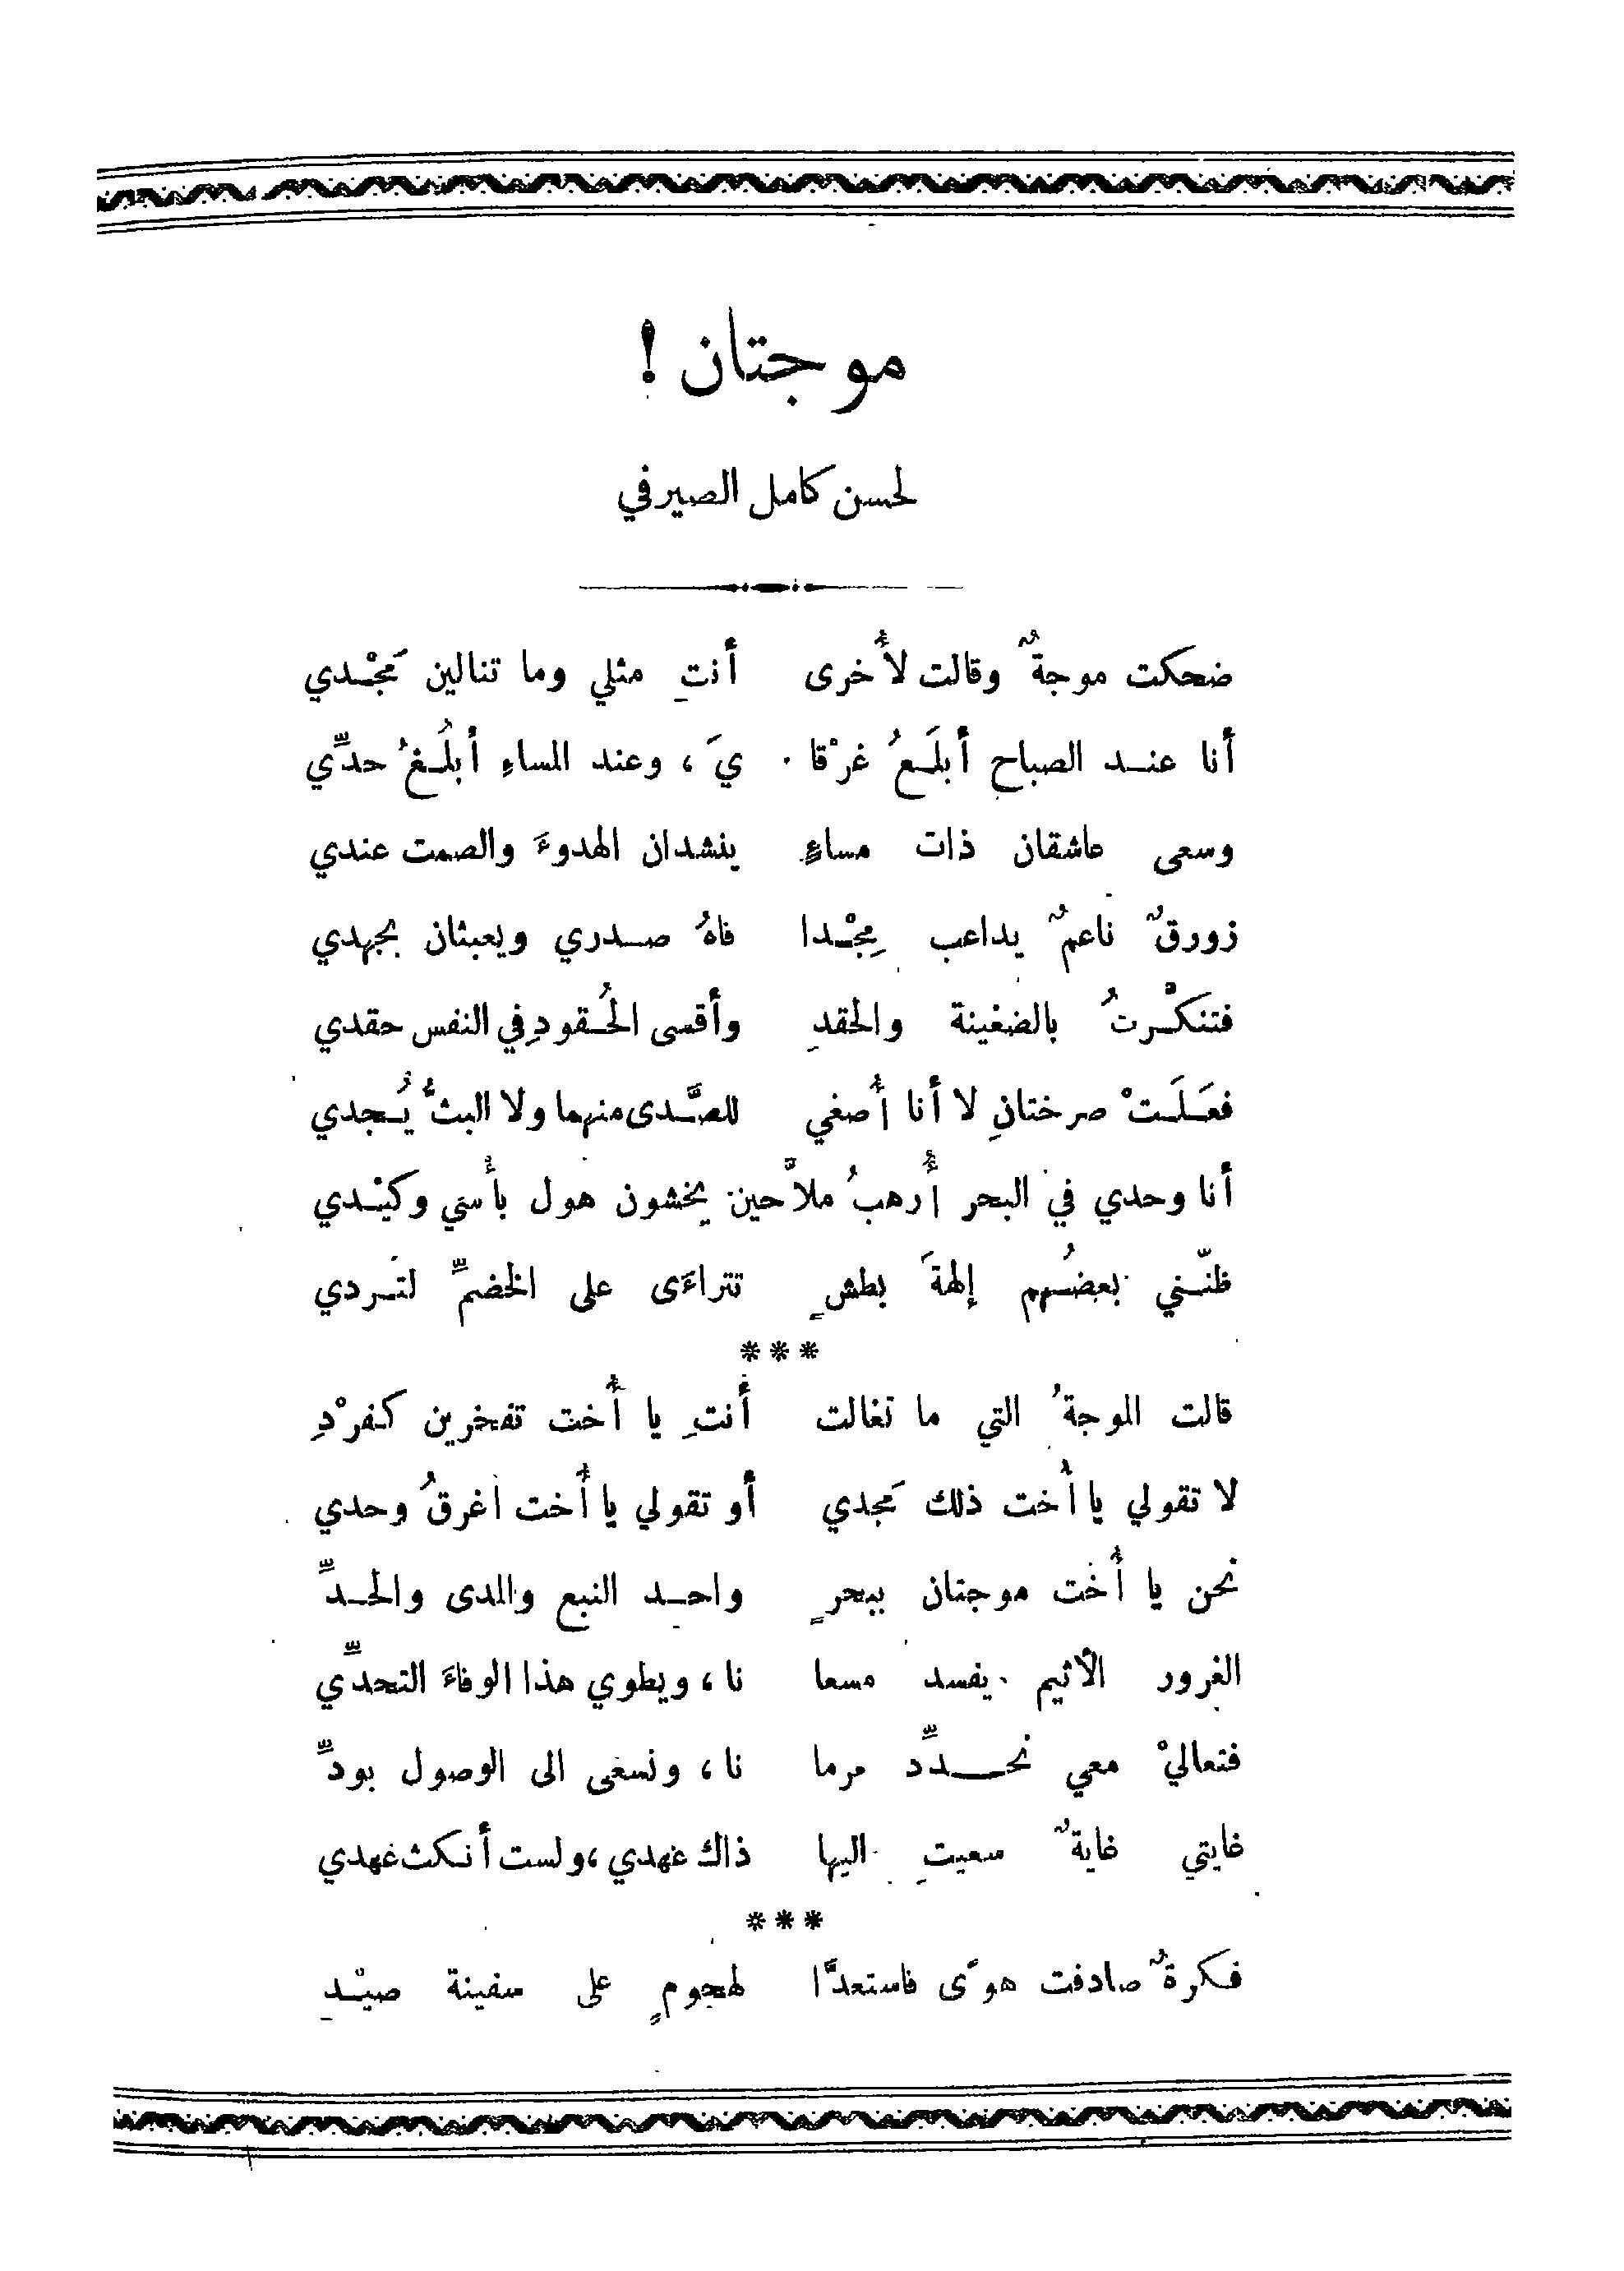 موجتان !
لحسن كامل الصيرفي
ضحكت موجةٌ وقالت لأُخرى أنتِ مثلي وما تنالين مَجْدي
أنا عند الصباح أبلَعُ غرْقا يَ ، وعند المساءِ أبلُغُ حدِّي
وسعى عاشقان ذات مساءٍ ينشدان الهدوءَ والصمت عندي
زورقٌ ناعمٌ يداعب مِجْدا فاهُ صدري ويعبثان بجهدي
فتنكْرتُ بالضغينة والحقدِ وأقسى الحُقودِ في النفس حقدي
فعَلَتْ صرختانِ لا أنا أُصغي للصَّدى منهما ولا البثُّ يُجدي
أنا وحدي في البحر أُرهبُ ملاَّحين يخشون هول بأسي وكيْدي
ظنّني بعضُهم إلهةَ بطشٍ تتراءَى على الخضمِّ لتَردي
***
قالت الموجةُ التي ما تغالت أنتِ يا أُخت تفخرين كفرْدِ
لا تقولي يا أُخت ذلك مَجدي أو تقولي يا أُخت أغرقُ وحدي
نحن يا أُخت موجتان ببحرٍ واحد النبع والمدى والحدِّ
الغرور الأثيم يفسد مسعا نا ، ويطوي هذا الوفاءَ التحدِّي
فتعاليْ معي نحدِّد مرما نا ، ونسعى الى الوصول بودِّ
غايتي غايةٌ سعيتِ اليها ذاك عهدي ، ولست أنكث عهدي
***
فكرةٌ صادفت هوًى فاستعدَّا لهجومٍ على سفينة صيْدِ